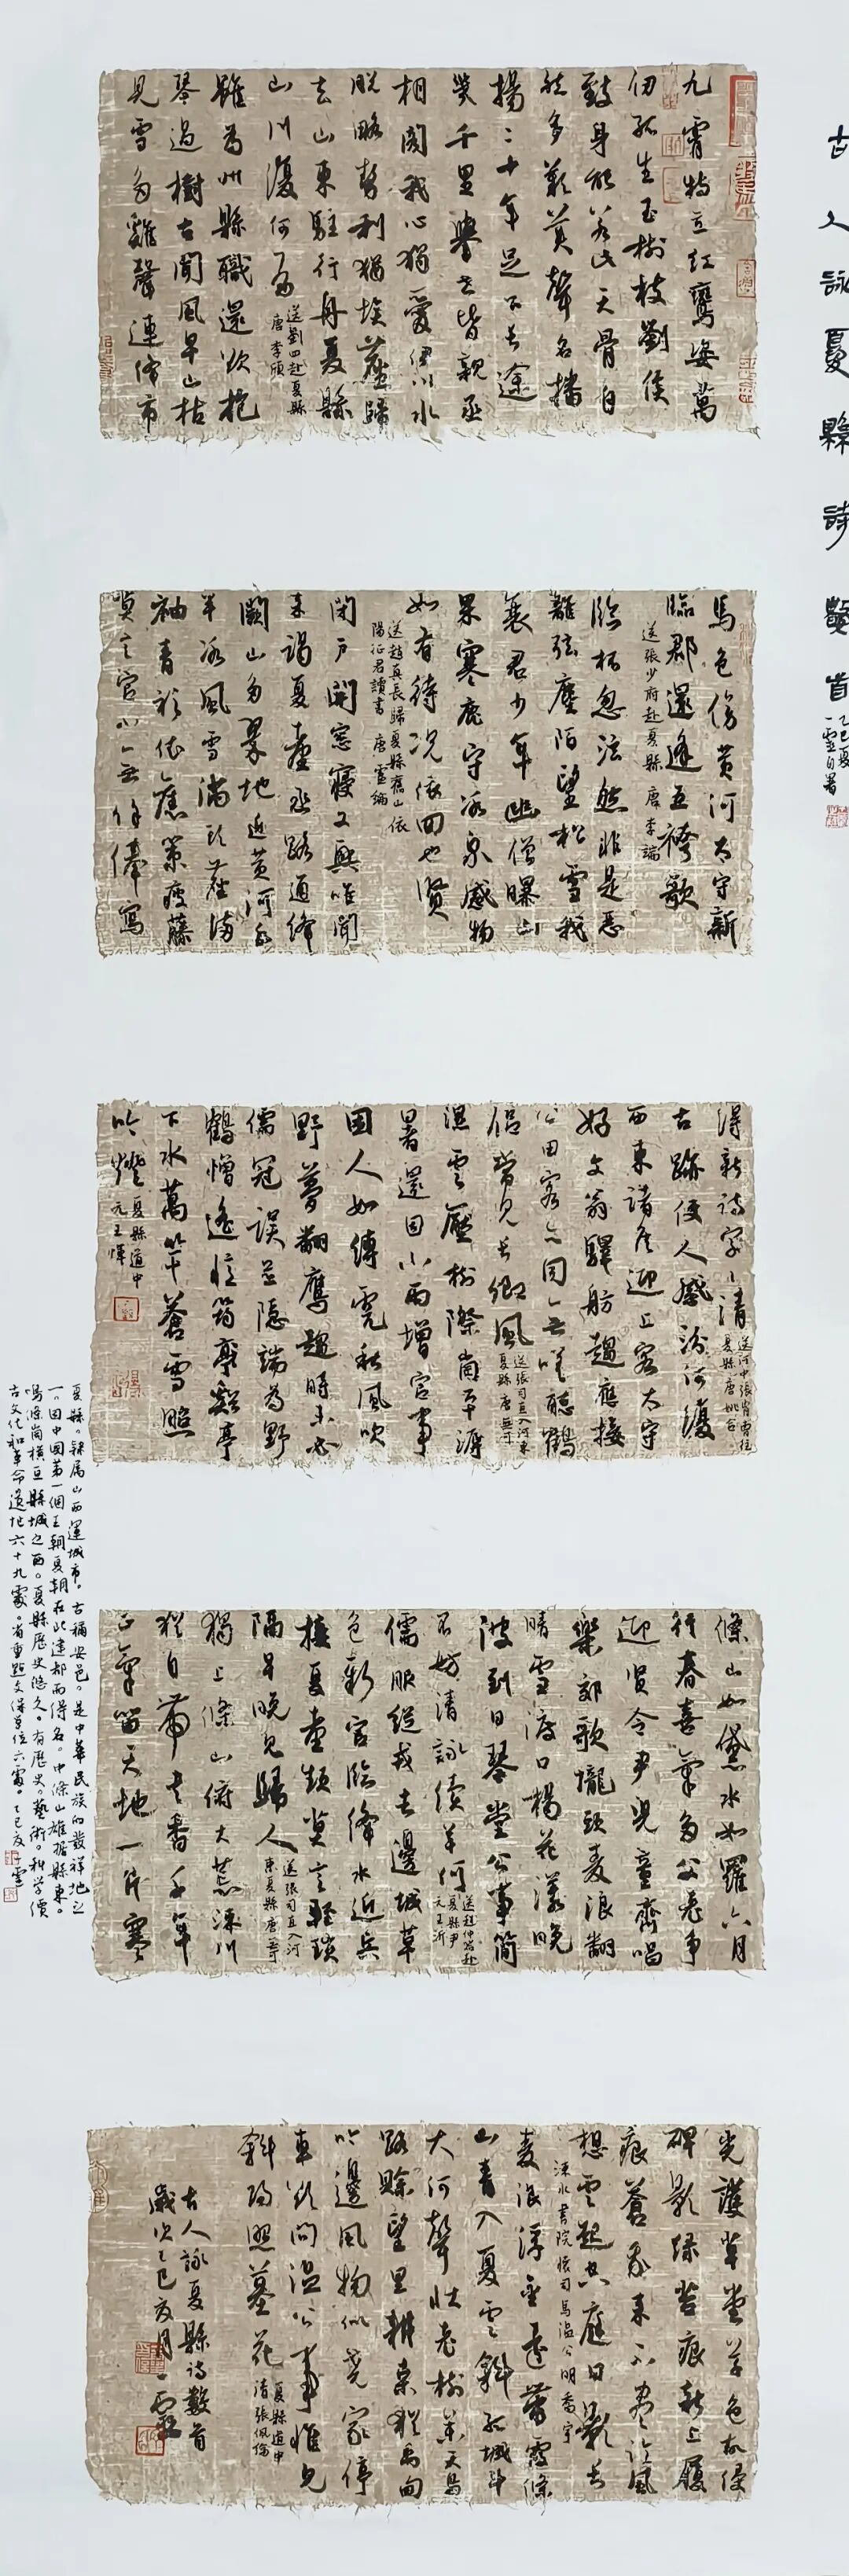 古人詠夏縣詩數首
乙巳夏
一雪自署
九霄特立紅鸞姿萬
仞孤生玉樹枝劉侯
致身能若此天骨自
然多嘆美聲名播
揚二十年足下長途
幾千里舉世皆親丞
相閣我心獨愛伊川水
脫略勢利猶埃塵歸
去山東駐行舟夏縣
山川復何有
送劉四赴夏縣
唐 李頎
雖為州縣職還欲抱
琴過樹古聞風早山枯
見雪多雞聲連絳市
馬色傍黃河太守新
臨郡還逢五袴歌
送張少府赴夏縣 唐 李端
臨杯忽泫然非是惡
離弦塵陌望松雪我
衰君少年幽僧曝山
果寒鹿守冰泉感物
如有待況依回也賢
送趙真長歸夏縣舊山依
陽征君讀書 唐 盧綸
閉戶開窗寢又興唯聞
來謁夏臺丞路通絳
闕山多翠地近黃河水
半冰風雪滿頭塵滿
袖青衫依舊策瘦藤
嗔之官小無餘俸寫
得新詩字字清
送河中張胄曹往
夏縣 唐 姚合
古跡使人感汾河復
西東諸侯迎上客太守
好文翁驛舫趨應接
公田客亦同無嗟聽鶴
侶常見長卿風
送張司直入河東
夏縣 唐 無可
濕雲壓樹際崗平溽
暑還因小雨增官事
困人如縛虎秋風吹
野夢翻鷹趨時未必
儒冠誤忘隱端為野
鶴憎遙憶筠亭谿亭
下水萬竿蒼雪照
吟燈
夏縣道中
元 王惲
條山如黛水如羅六月
行春喜氣多父老爭
迎賢令尹兒童齊唱
樂郊歌隴頭麥浪翻
晴雪渡口楊花漾晚
波到日琴堂公事簡
不妨清詠續羊何
送趙仲器赴
夏縣尹
元 王沂
儒服從戎去邊城草
色新官臨絳水近兵
接夏臺頻莫言輕瑣
隔早晚見歸人
送張司直入河
東夏縣 唐 無可
獨上條山俯大荒涑川
猶自帶書香千年
正氣留天地一片寒
光護草堂草色故侵
碑影綠苔痕新上履
痕蒼我來不盡臨風
想雲起空庭日影長
涑水書院懷司馬溫公 明 喬宇
麥浪浮金遠帶霞條
山青入夏雲斜孤城斗
大河聲壯老樹參天鳥
路賒望里耕桑猶禹甸
吟邊風物似堯家停
車欲問溫公事惟見
斜陽照墓花
夏縣道中
清 張佩倫
古人詠夏縣詩數首
歲次乙巳夏月一雪
夏縣。隸屬山西運城市。古稱安邑。是中華民族的發祥地之
一。因中國第一個王朝夏朝在此建都而得名。中條山雄據縣東。
鳴條崗橫亘縣城之西。夏縣歷史悠久。有歷史。藝術。科學價
古文化和革命遺址六十九處。省重點文保單位六處。乙巳夏一雪